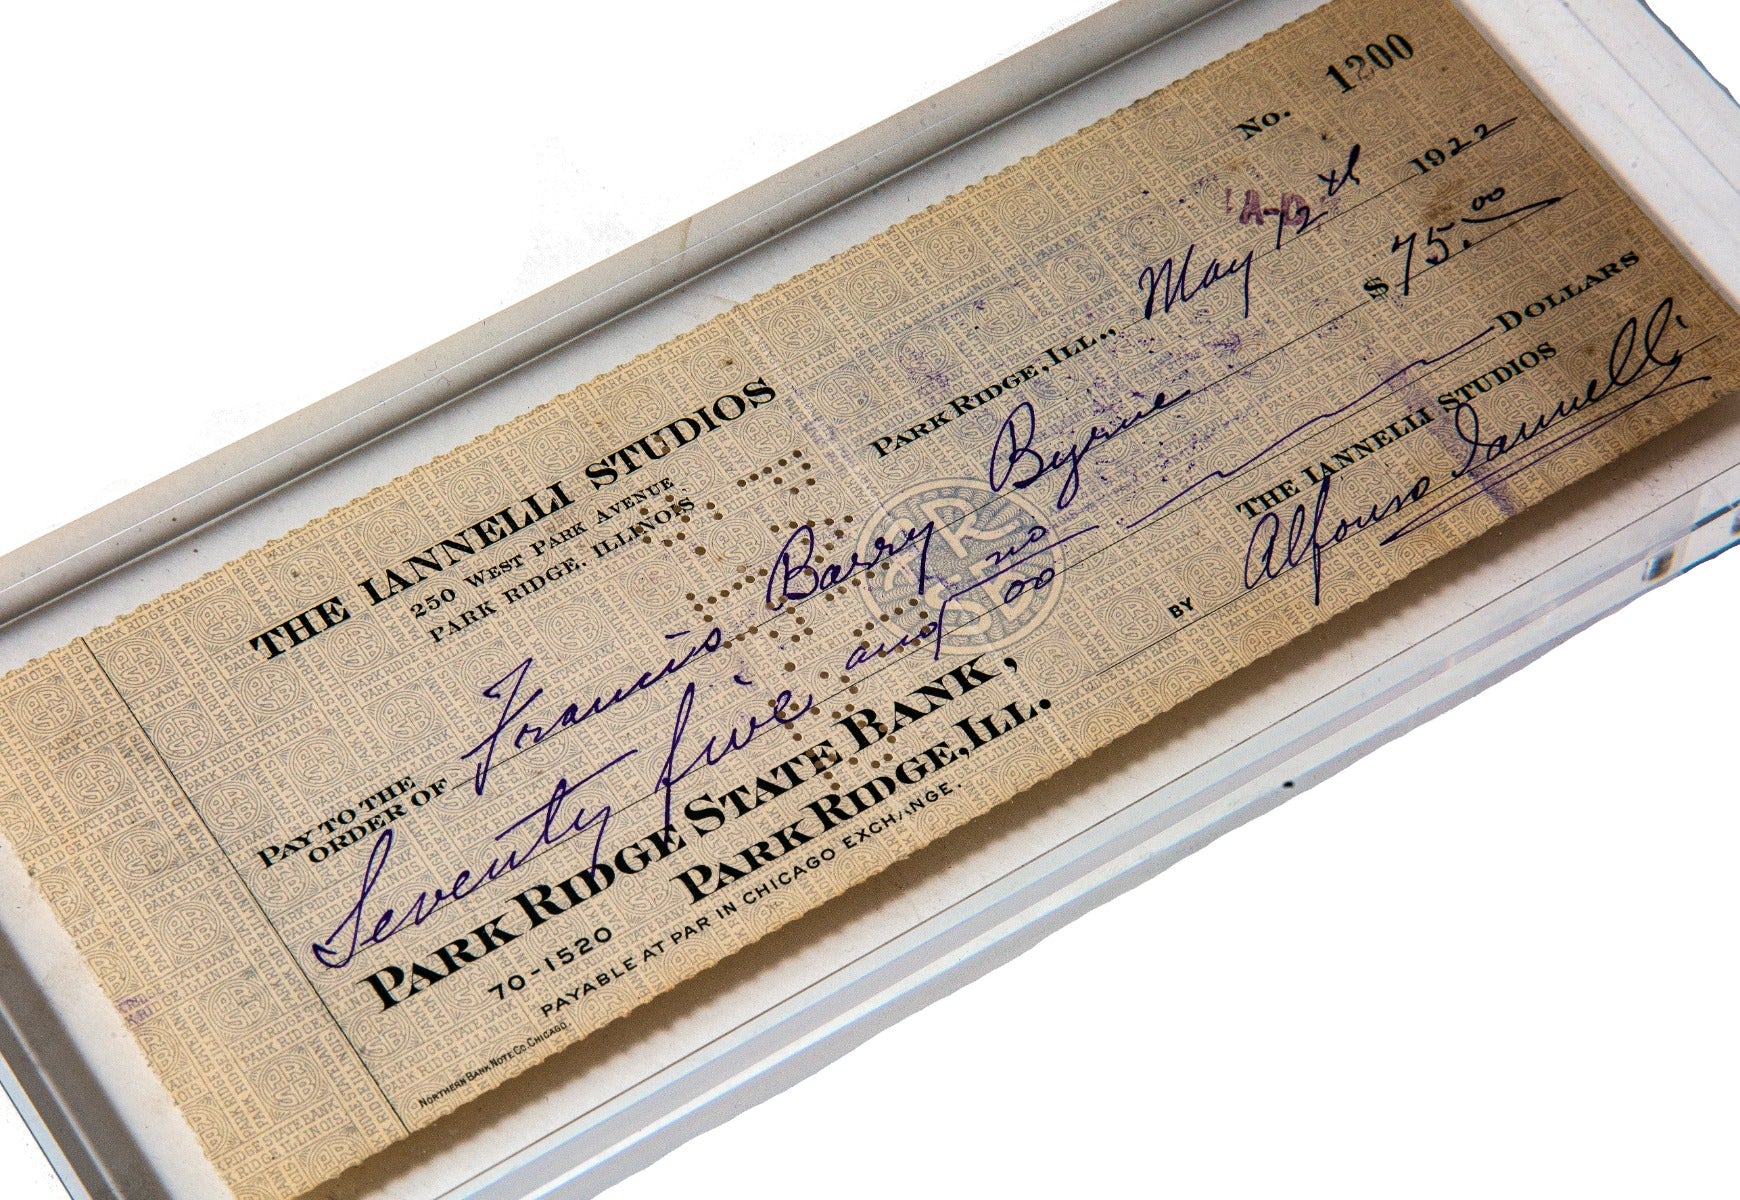 No. 1200
THE IANNELLI STUDIOS
250 WEST PARK AVENUE
PARK RIDGE, ILLINOIS
PARK RIDGE, ILL., May 12th 1922
A-D
PAY TO THE
ORDER OF Francis Barry Byrne $75.00
Seventy five and no/00 DOLLARS
PARK RIDGE STATE BANK,
PARK RIDGE, ILL.
THE IANNELLI STUDIOS
BY Alfonso Iannelli
70-1520
PAYABLE AT PAR IN CHICAGO EXCHANGE.
NORTHERN BANK NOTE CO. CHICAGO.